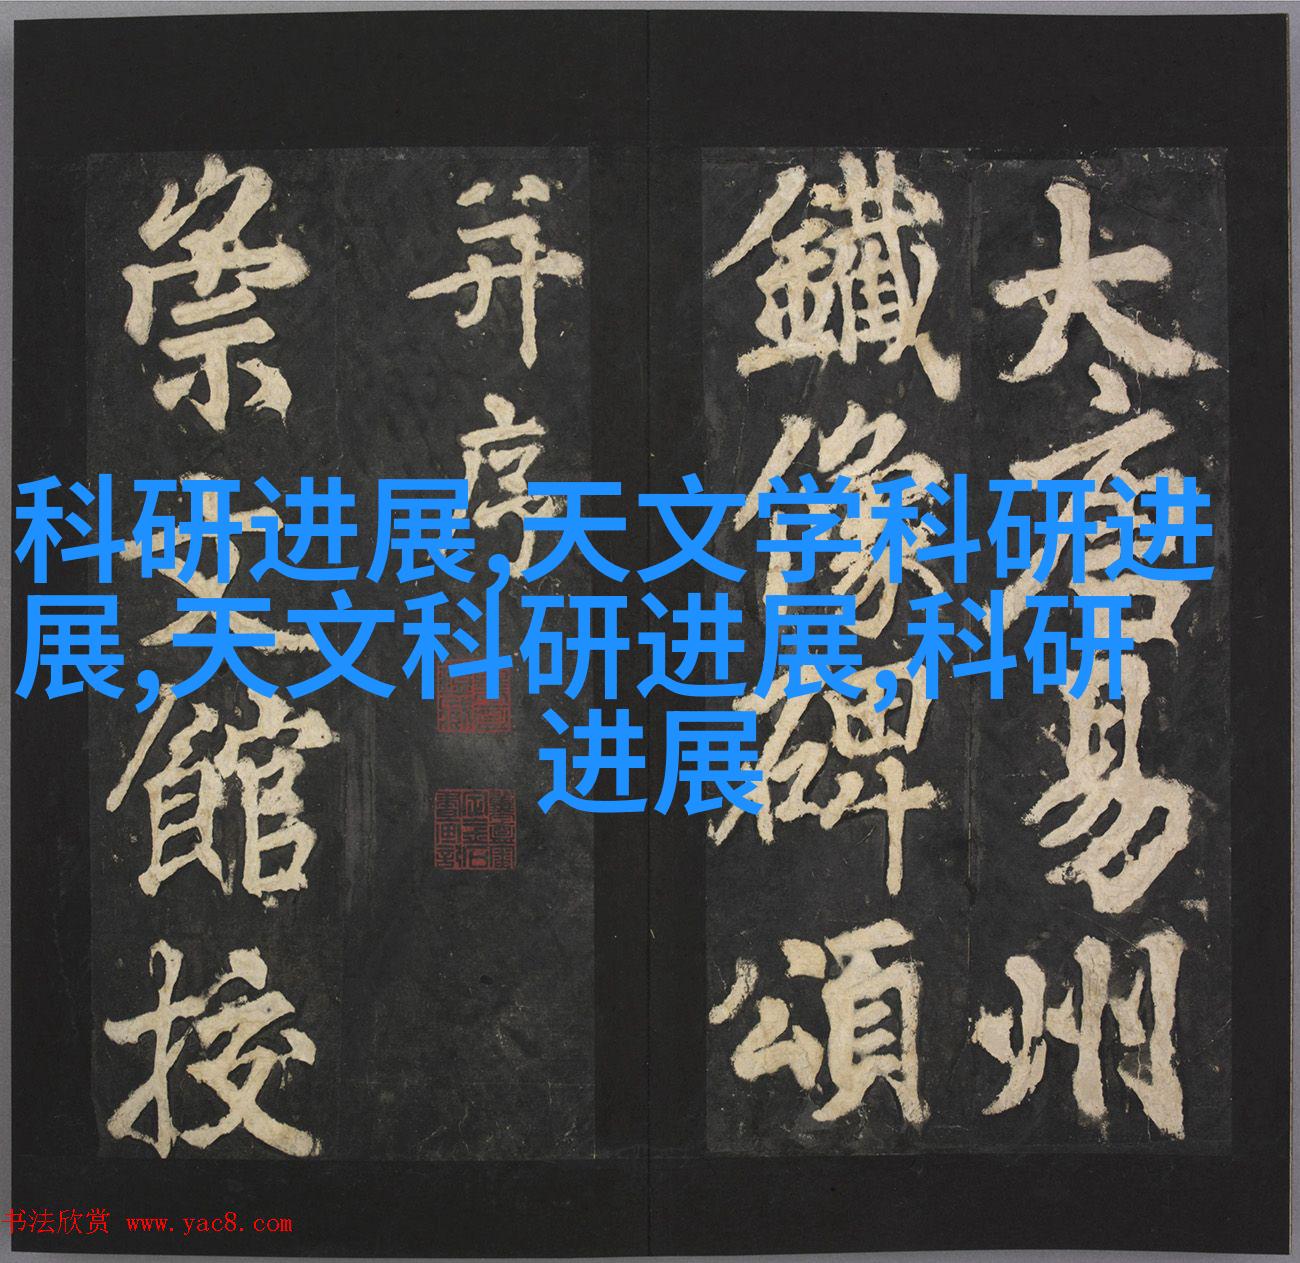 科研进展,天文学科研进
展,天文科研进展,科研
进展
大唐易州
鐵像碑頌
并序
崇文館挍
书法欣赏 www.yac8.com